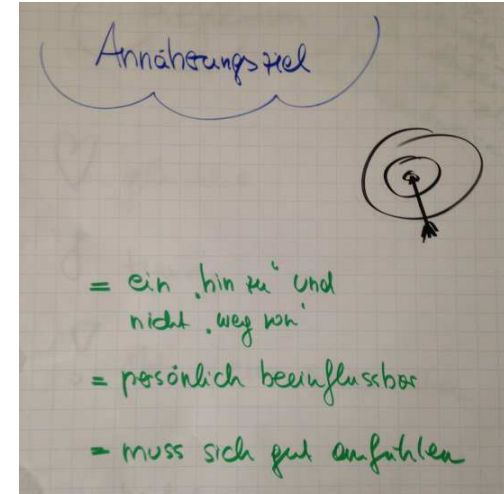 Annäherungsziel
= ein „hin zu" und
nicht „weg von"
= persönlich beeinflussbar
= muss sich gut anfühlen